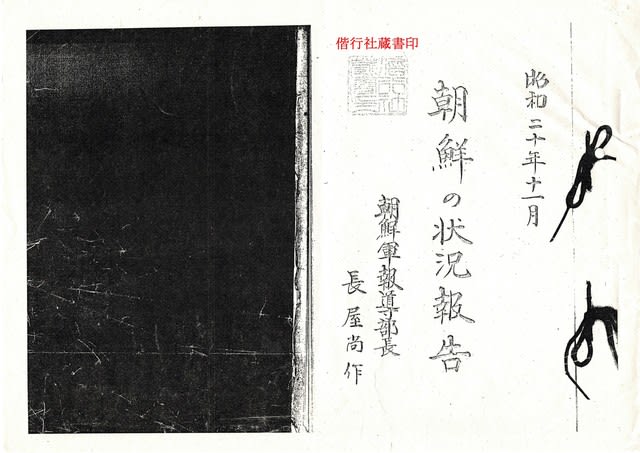 昭和二十年十一月
朝鮮の状況報告
朝鮮軍報導部長
長屋尚作
偕行社蔵書印